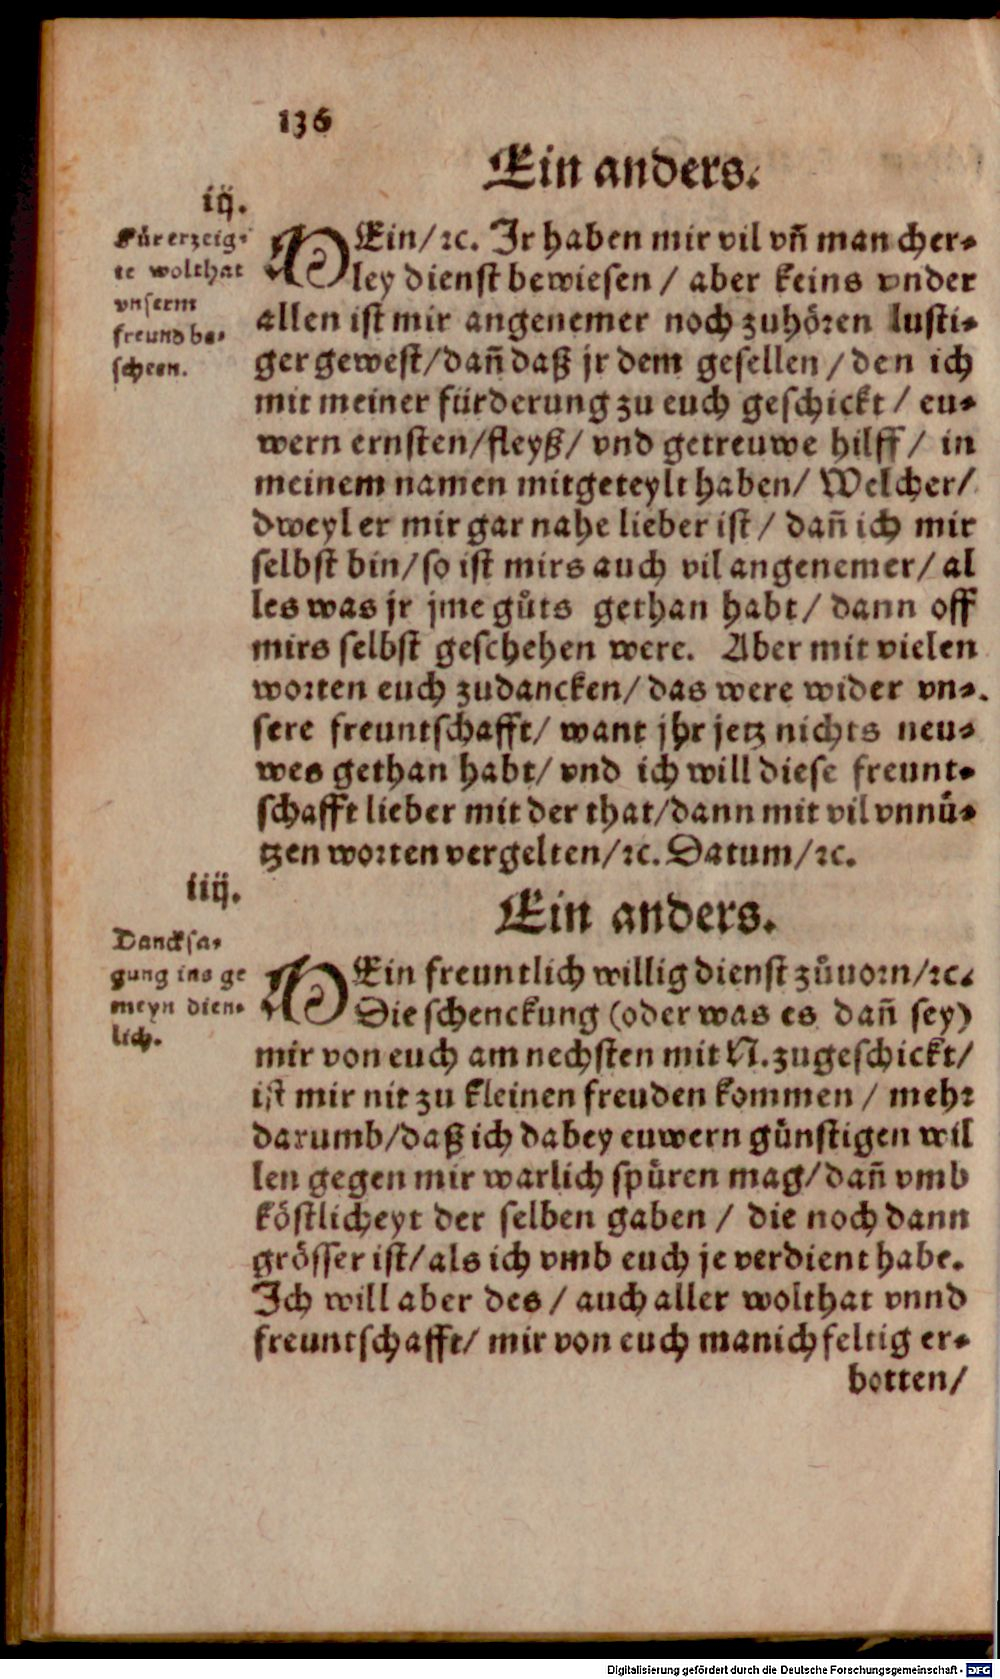 136
Ein anders.
iij.
Für erzeig-
te wolthat
vnserm
freund be-
scheen.
MEin/ ꝛc. Ir haben mir vil vñ man cher-
ley dienst bewiesen / aber keins vnder
allen ist mir angenemer noch zuhören lusti-
ger gewest/ dañ daß jr dem gesellen / den ich
mit meiner fürderung zu euch geschickt / eu-
wern ernsten/ fleyß/ vnd getreuwe hilff/ in
meinem namen mitgeteylt haben/ Welcher/
dweyl er mir gar nahe lieber ist / dañ ich mir
selbst bin/ so ist mirs auch vil angenemer/ al
les was jr jme gůts gethan habt/ dann off
mirs selbst geschehen were. Aber mit vielen
worten euch zudancken/ das were wider vn-
sere freuntschafft/ want jhr jetz nichts neu-
wes gethan habt/ vnd ich will diese freunt-
schafft lieber mit der that/ dann mit vil vnnü-
tzen worten vergelten/ ꝛc. Datum/ ꝛc.
iiij.
Ein anders.
Dancksa-
gung ins ge
meyn dien-
lich.
MEin freuntlich willig dienst zůuorn/ ꝛc.
Die schenckung (oder was es dañ sey)
mir von euch am nechsten mit N. zugeschickt/
ist mir nit zu kleinen freuden kommen / mehr
darumb/ daß ich dabey euwern günstigen wil
len gegen mir warlich spüren mag/ dañ vmb
köstlicheyt der selben gaben / die noch dann
grösser ist/ als ich vmb euch je verdient habe.
Ich will aber des / auch aller wolthat vnnd
freuntschafft/ mir von euch manichfeltig er-
botten/
Digitalisierung gefördert durch die Deutsche Forschungsgemeinschaft - DFG